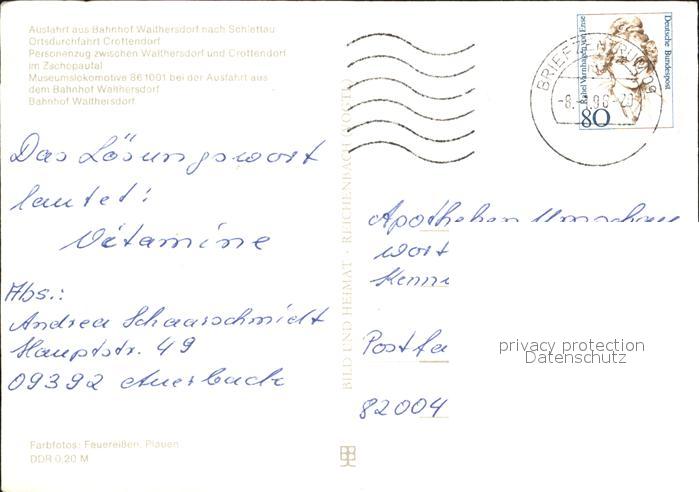 Ausfahrt aus Bahnhof Walthersdorf nach Schlettau
Ortsdurchfahrt Crottendorf
Personenzug zwischen Walthersdorf und Crottendorf
im Zschopautal
Museumslokomotive 86 1001 bei der Ausfahrt aus
dem Bahnhof Walthersdorf
Bahnhof Walthersdorf
Das Lösungswort
lautet:
Vitamine
Abs.:
Andrea Schaarschmidt
Hauptstr. 49
09392 Auerbach
Farbfotos: Feuereißen, Plauen
DDR 0,20 M
BILD UND HEIMAT · REICHENBACH (VOGTL)
Deutsche Bundespost
Rahel Varnhagen von Ense
80
BRIEFZENTRUM
Apotheken Umschau
wort
Kenn
Postfa
82004
privacy protection
Datenschutz